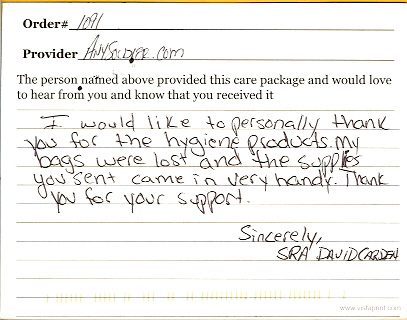 Order# 1091
Provider AnySoldier.com
The person named above provided this care package and would love
to hear from you and know that you received it
I would like to personally thank
you for the hygiene products. My
bags were lost and the supplies
you sent came in very handy. Thank
you for your support.
Sincerely,
SRA DAVID CARDEN
www.vistaprint.com